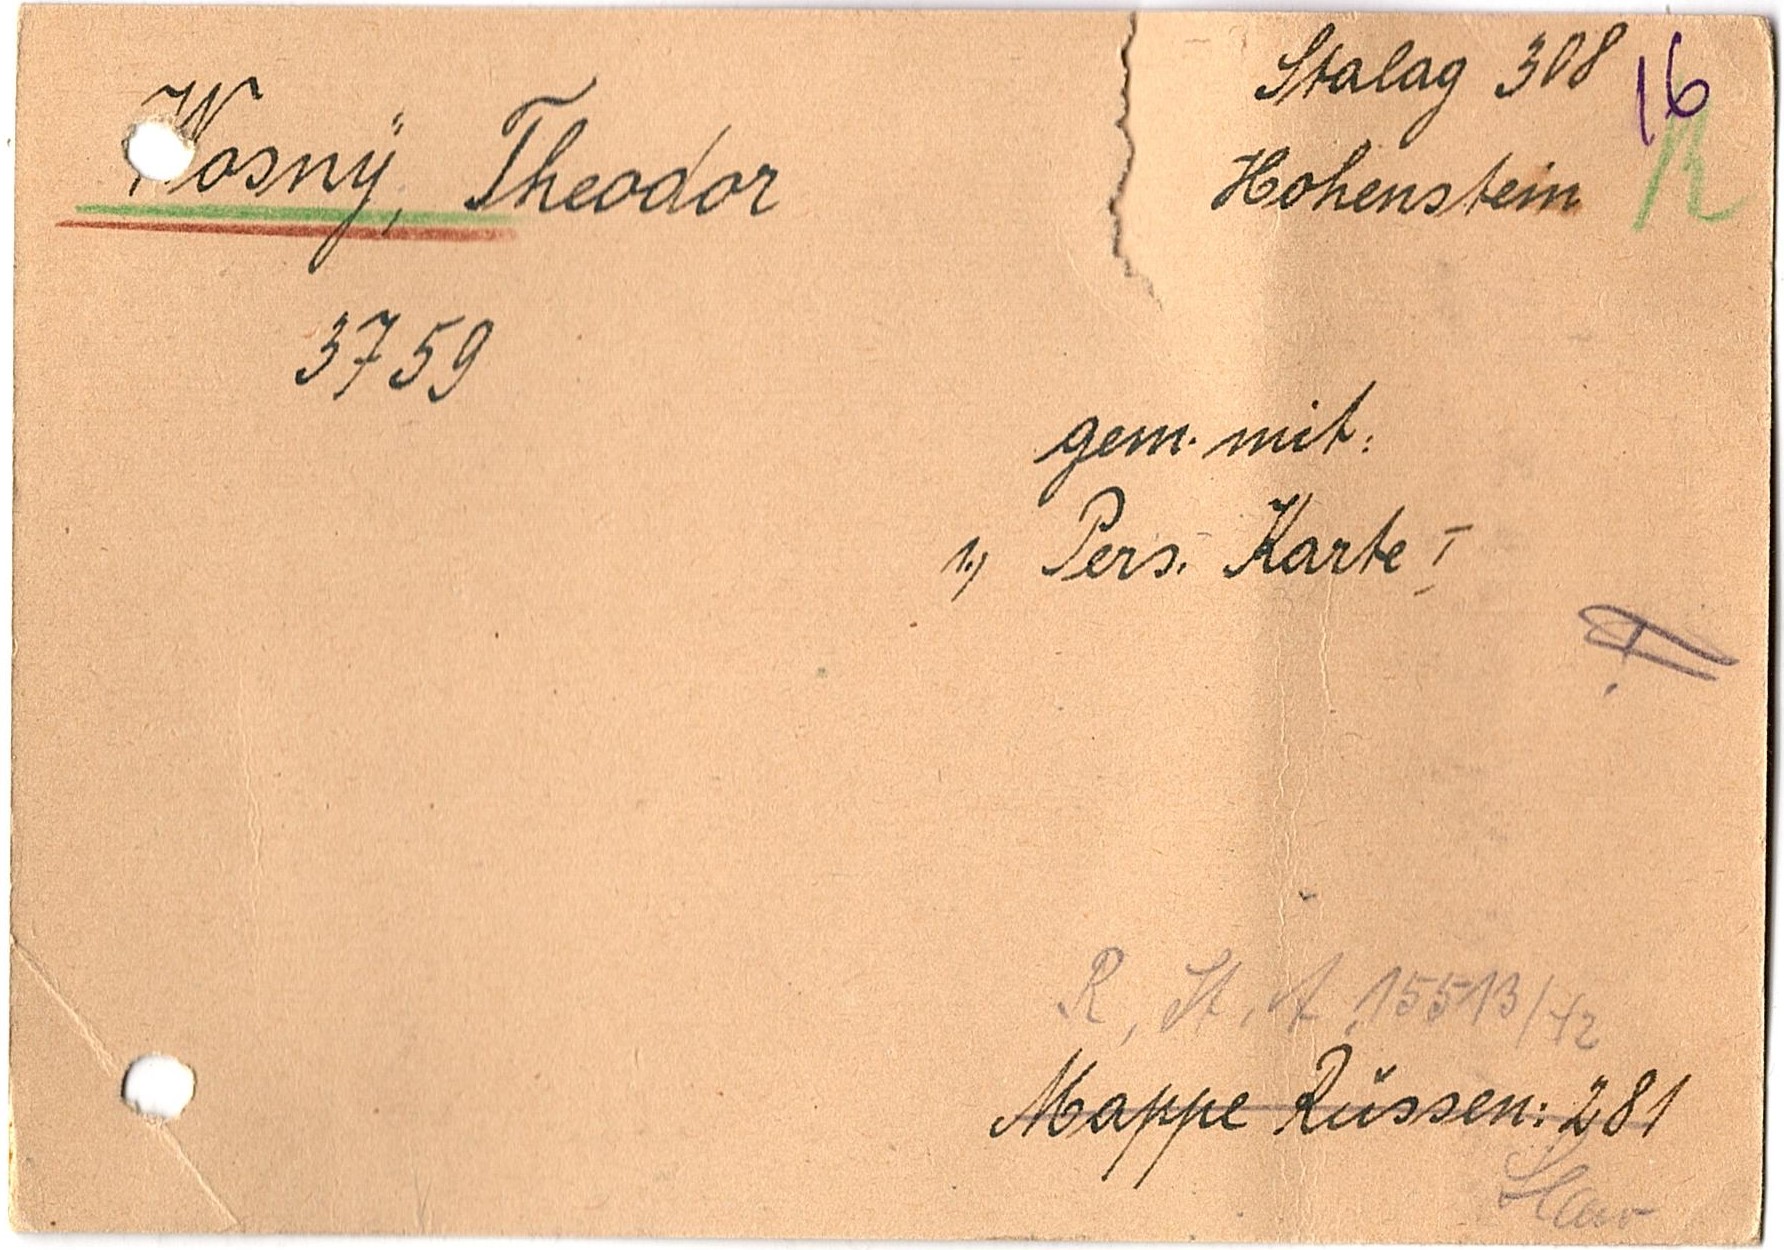 Wosnÿ, Theodor
3759
Stalag 308
Hohenstein
16
R
gem. mit:
1.) Pers. Karte I
R. St. A. 15513/42
Mappe Rŭssen: 281